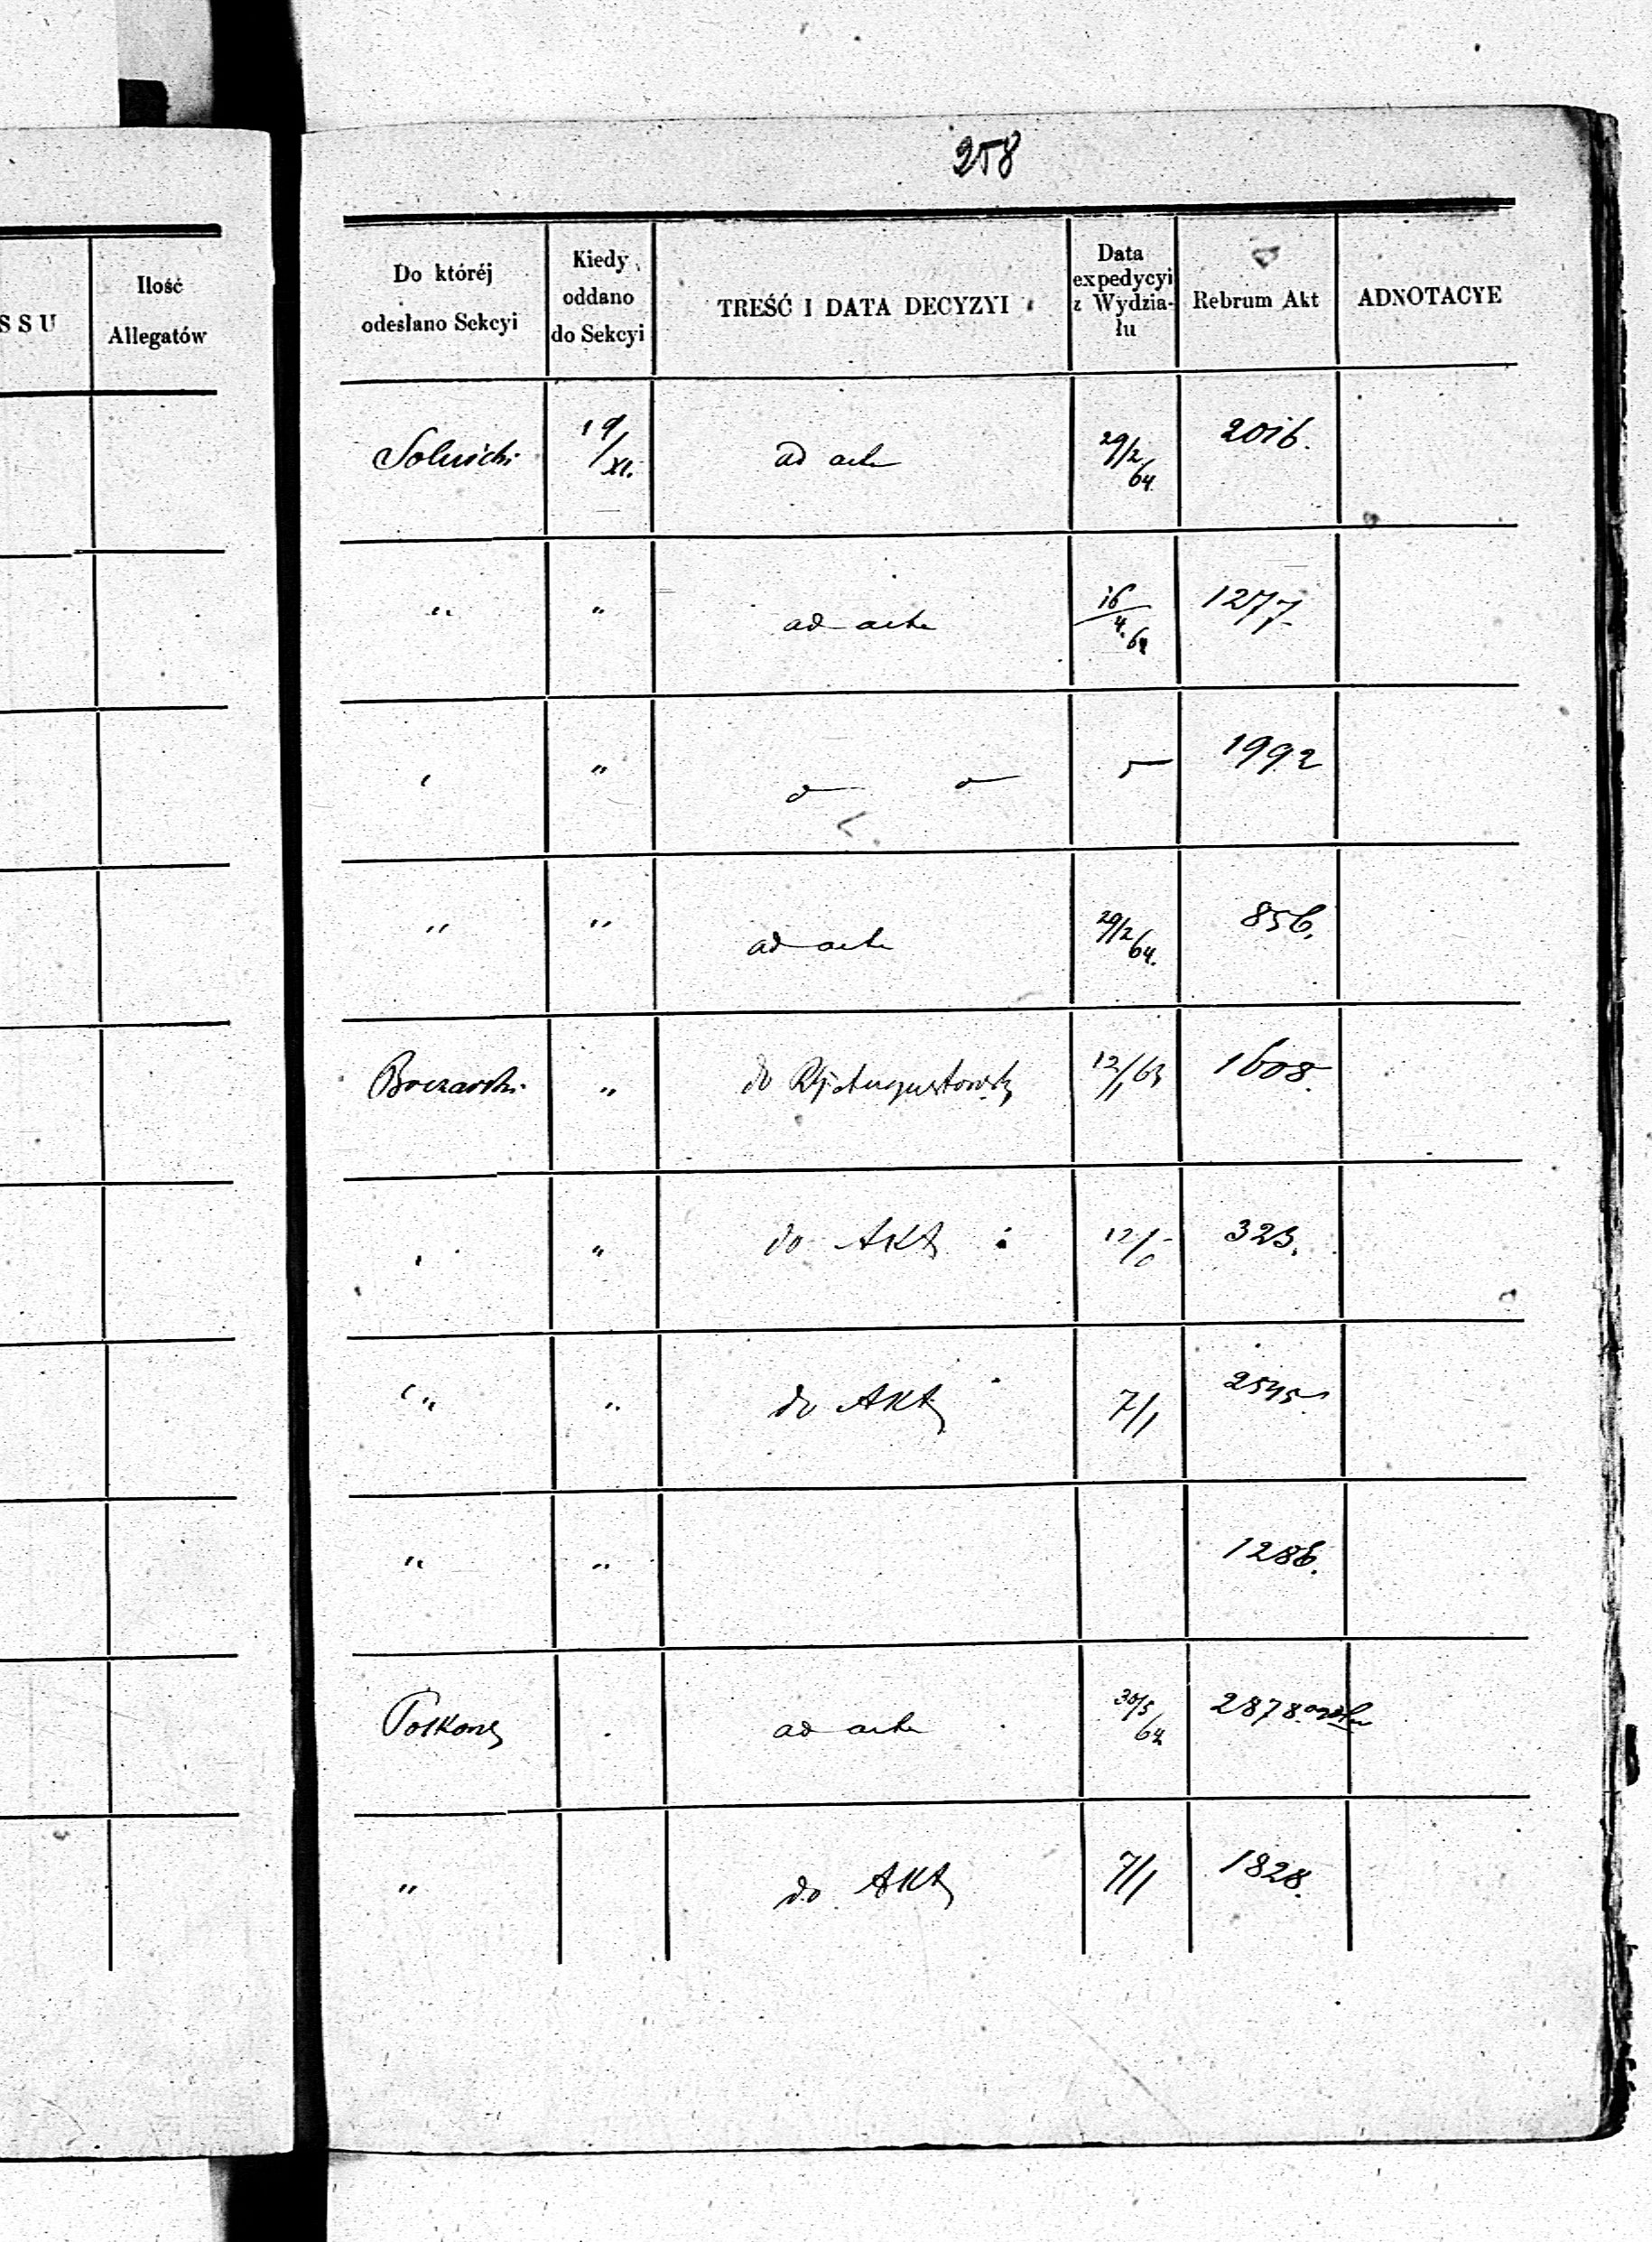 258
SSU
Ilość
Allegatów
Do któréj
odesłano Sekcyi
Kiedy
oddano
do Sekcyi
TREŚĆ I DATA DECYZYI
Data
expedycyi
z Wydzia-
łu
Rebrum Akt
ADNOTACYE
19/XI. ad acta 29/2 64 2016.
" " ad acta 16/4. 64 1277.
" 1992
" " ad acta 29/2 64. 856.
" do 12/1 63 1608.
" do Akt 12/ 323.
" " do Akt 7/1 2545
" " 1286.
ad acta 30/5 64 2878
" do Akt 7/1 1828.